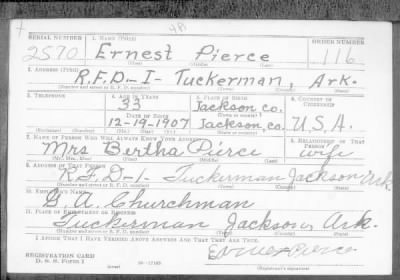 SERIAL NUMBER 1. NAME (Print) ORDER NUMBER
2570 Ernest Pierce 116
(First) (Middle) (Last)
2. ADDRESS (Print)
R.F.D-1- Tuckerman, Ark.
(Number and street or R. F. D. number) (Town) (County) (State)
3. TELEPHONE 4. AGE IN YEARS 5. PLACE OF BIRTH 6. COUNTRY OF CITIZENSHIP
33 Jackson, co.
DATE OF BIRTH (Town or county)
12-19-1907 Jackson, co. U.S.A.
(Exchange) (Number) (Mo.) (Day) (Yr.) (State or country)
7. NAME OF PERSON WHO WILL ALWAYS KNOW YOUR ADDRESS 8. RELATIONSHIP OF THAT PERSON
Mrs Bertha Pierce wife
(Mr., Mrs., Miss) (First) (Middle) (Last)
9. ADDRESS OF THAT PERSON
R.F.D-1- Tuckerman Jackson Ark
(Number and street or R. F. D. number) (Town) (County) (State)
10. EMPLOYER'S NAME
G. A. Churchman
11. PLACE OF EMPLOYMENT OR BUSINESS
Tuckerman Jackson Ark.
(Number and street or R. F. D. number) (Town) (County) (State)
I AFFIRM THAT I HAVE VERIFIED ABOVE ANSWERS AND THAT THEY ARE TRUE.
REGISTRATION CARD Ernest Pierce
D. S. S. Form 1 (over) 16-17105 (Registrant's signature)